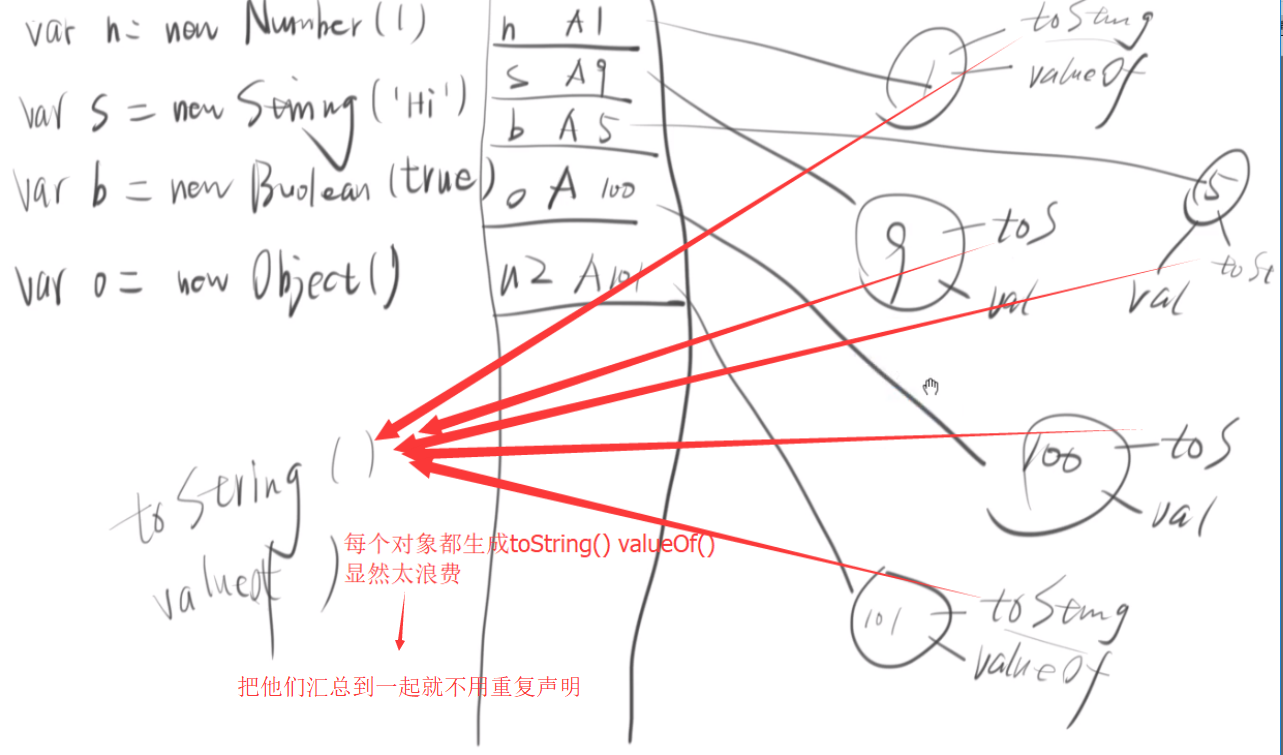 var n = new Number(1)
var s = new String('Hi')
var b = new Boolean(true)
var o = new Object()
n A1
s A9
b A5
o A 100
n2 A101
1
toString
valueOf
9
toS
val
5
val
toSt
100
toS
val
101
toString
valueOf
toString ()
valueOf )
每个对象都生成toString() valueOf()
显然太浪费
把他们汇总到一起就不用重复声明